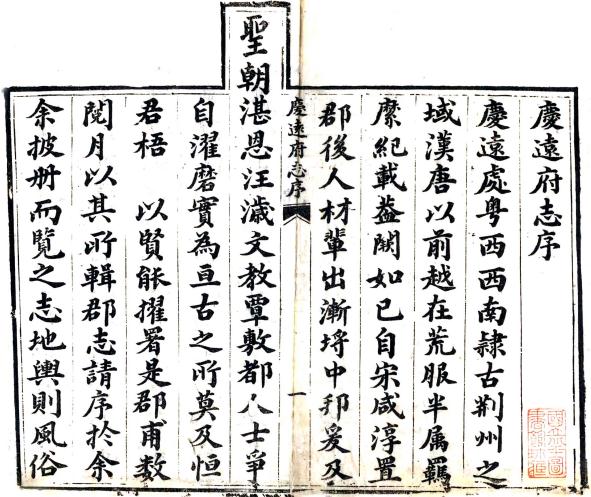 慶遠府志序
慶遠處粤西西南隸古荆州之
域漢唐以前越在荒服半属羈
縻紀載葢闕如已自宋咸淳置
郡後人材輩出漸埒中邦爰及
慶遠府志序
一
聖朝湛恩汪濊文教覃敷都人士爭
自濯磨實為亘古之所莫及恒
君梧以賢能擢署是郡甫数
閱月以其所輯郡志請序於余
余披册而覽之志地輿則風俗